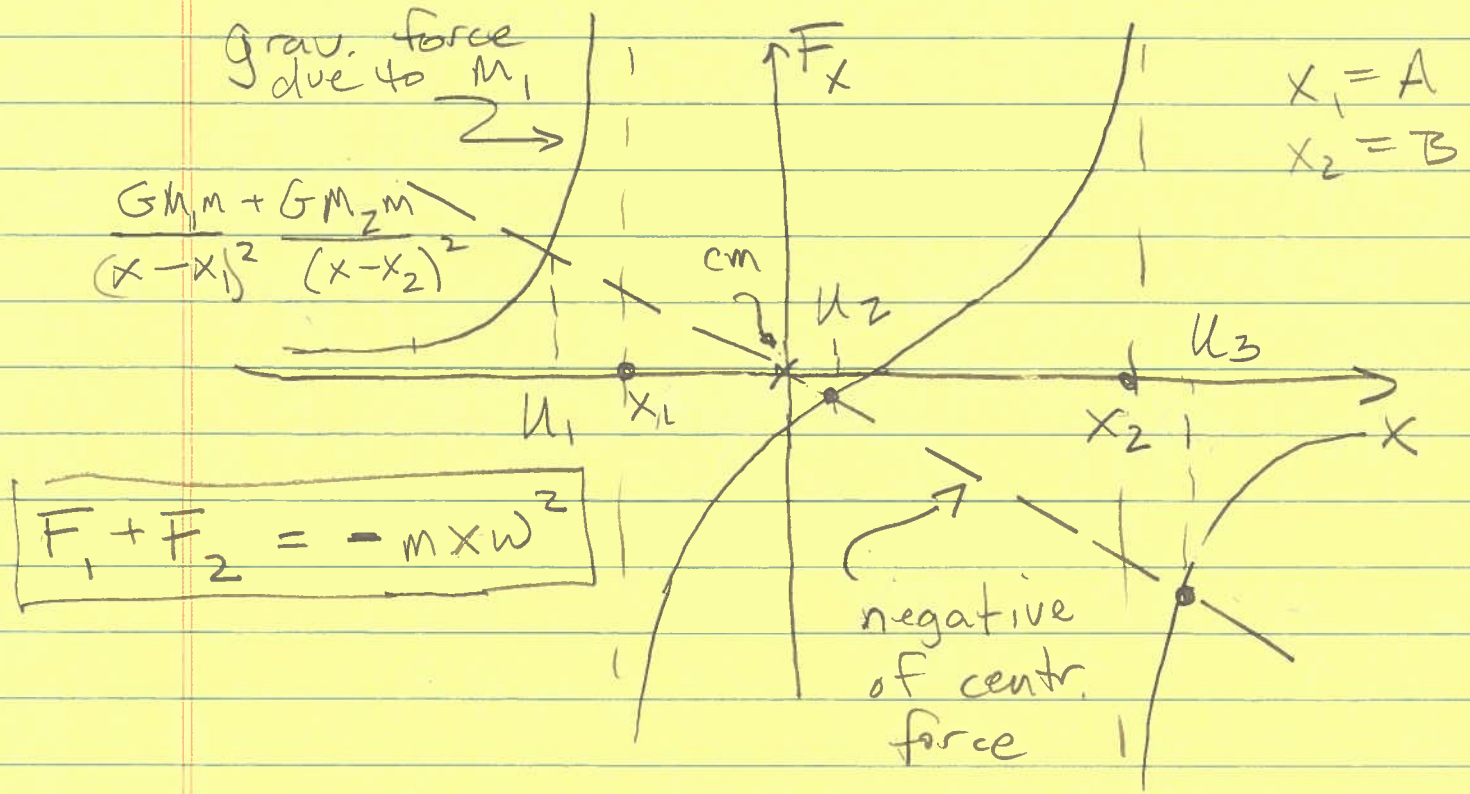 grav. force
due to M₁
F̅ₓ
x₁ = A
x₂ = B
GM₁m/(x-x₁)² + GM₂m/(x-x₂)²
cm
u₂
u₃
u₁
x₁
x₂
x
F̅₁ + F̅₂ = - mxω²
negative
of centr.
force